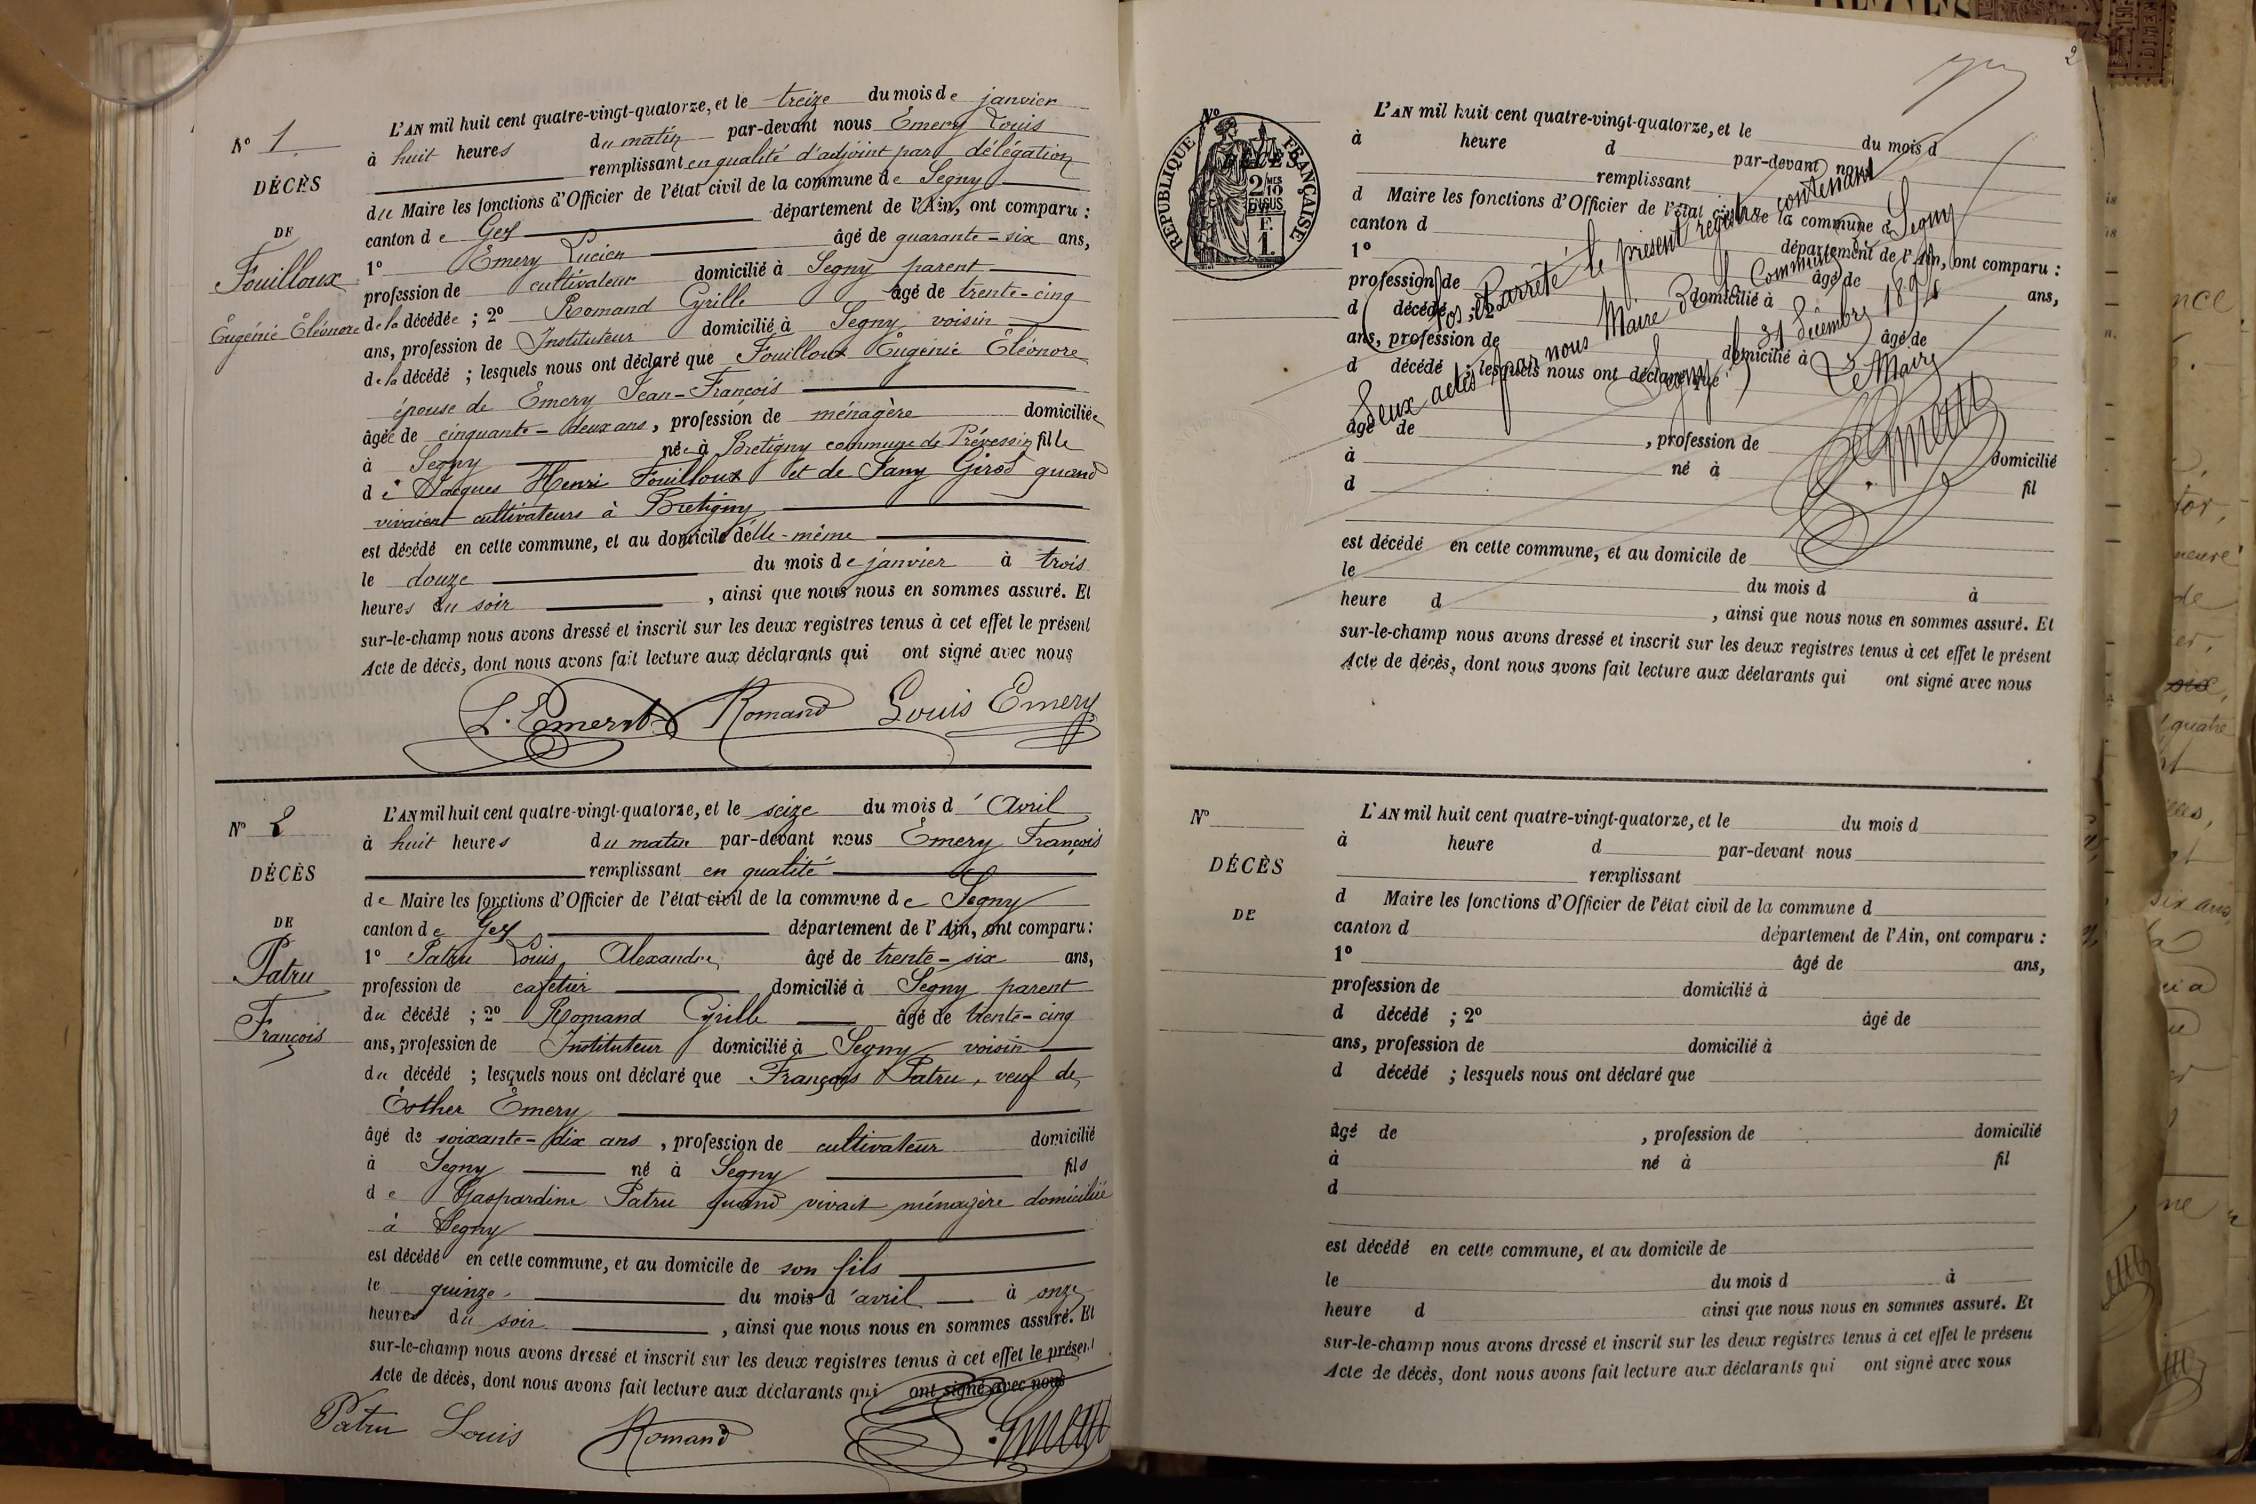 N° 1.
DÉCÈS
DE
Fouilloux
Eugénie Éléonore
L'AN mil huit cent quatre-vingt-quatorze, et le treize du mois de janvier
à huit heures du matin par-devant nous Émery Louis
remplissant en qualité d'adjoint par délégation
du Maire les fonctions d'Officier de l'état civil de la commune de Segny
canton de Gex département de l'Ain, ont comparu :
1° Émery Lucien âgé de quarante-six ans,
profession de cultivateur domicilié à Segny parent
de la décédée ; 2° Romand Cyrille âgé de trente-cinq
ans, profession de Instituteur domicilié à Segny voisin
de la décédé ; lesquels nous ont déclaré que Fouilloux Eugénie Éléonore
épouse de Émery Jean-François
âgée de cinquante-deux ans, profession de ménagère domiciliée
à Segny née à Bretigny commune de Prévessin fille
de Jacques Henri Fouilloux et de Fany Girod quand
vivaient cultivateurs à Bretigny
est décédé en cette commune, et au domicile d'elle-même
le douze du mois de janvier à trois
heures du soir, ainsi que nous nous en sommes assuré. Et
sur-le-champ nous avons dressé et inscrit sur les deux registres tenus à cet effet le présent
Acte de décès, dont nous avons fait lecture aux déclarants qui ont signé avec nous
L. Emery Romand Louis Emery
N° 2
DÉCÈS
DE
Patru
François
L'AN mil huit cent quatre-vingt-quatorze, et le seize du mois d'Avril
à huit heures du matin par-devant nous Émery François
remplissant en qualité
de Maire les fonctions d'Officier de l'état civil de la commune de Segny
canton de Gex département de l'Ain, ont comparu :
1° Patru Louis Alexandre âgé de trente-six ans,
profession de cafetier domicilié à Segny parent
du décédé ; 2° Romand Cyrille âgé de trente-cinq
ans, profession de Instituteur domicilié à Segny voisin
du décédé ; lesquels nous ont déclaré que François Patru, veuf de
Esther Émery
âgé de soixante-dix ans, profession de cultivateur domicilié
à Segny né à Segny fils
de Gaspardine Patru quand vivait ménagère domiciliée
à Segny
est décédé en cette commune, et au domicile de son fils
le quinze du mois d'avril à onze
heures du soir, ainsi que nous nous en sommes assuré. Et
sur-le-champ nous avons dressé et inscrit sur les deux registres tenus à cet effet le présent
Acte de décès, dont nous avons fait lecture aux déclarants qui ont signé avec nous
Patru Louis Romand
2
N°
RÉPUBLIQUE FRANÇAISE
2 MES
10
EN SUS
1 F.
L'AN mil huit cent quatre-vingt-quatorze, et le du mois d
à heure d par-devant nous
remplissant
d Maire les fonctions d'Officier de l'état civil de la commune d
canton d département de l'Ain, ont comparu :
1° âgé de ans,
profession de domicilié à
d décédé ; 2° âgé de
ans, profession de domicilié à
d décédé ; lesquels nous ont déclaré que
âgé de , profession de domicilié
à né à fil
d
Clos et arrêté le présent registre contenant
deux actes par nous Maire de la commune de Segny
Segny, 31 décembre 1894
Le Maire
est décédé en cette commune, et au domicile de
le du mois d à
heure d , ainsi que nous nous en sommes assuré. Et
sur-le-champ nous avons dressé et inscrit sur les deux registres tenus à cet effet le présent
Acte de décès, dont nous avons fait lecture aux déclarants qui ont signé avec nous
N°
DÉCÈS
DE
L'AN mil huit cent quatre-vingt-quatorze, et le du mois d
à heure d par-devant nous
remplissant
d Maire les fonctions d'Officier de l'état civil de la commune d
canton d département de l'Ain, ont comparu :
1° âgé de ans,
profession de domicilié à
d décédé ; 2° âgé de
ans, profession de domicilié à
d décédé ; lesquels nous ont déclaré que
âgé de , profession de domicilié
à né à fil
d
est décédé en cette commune, et au domicile de
le du mois d à
heure d ainsi que nous nous en sommes assuré. Et
sur-le-champ nous avons dressé et inscrit sur les deux registres tenus à cet effet le présent
Acte de décès, dont nous avons fait lecture aux déclarants qui ont signé avec nous